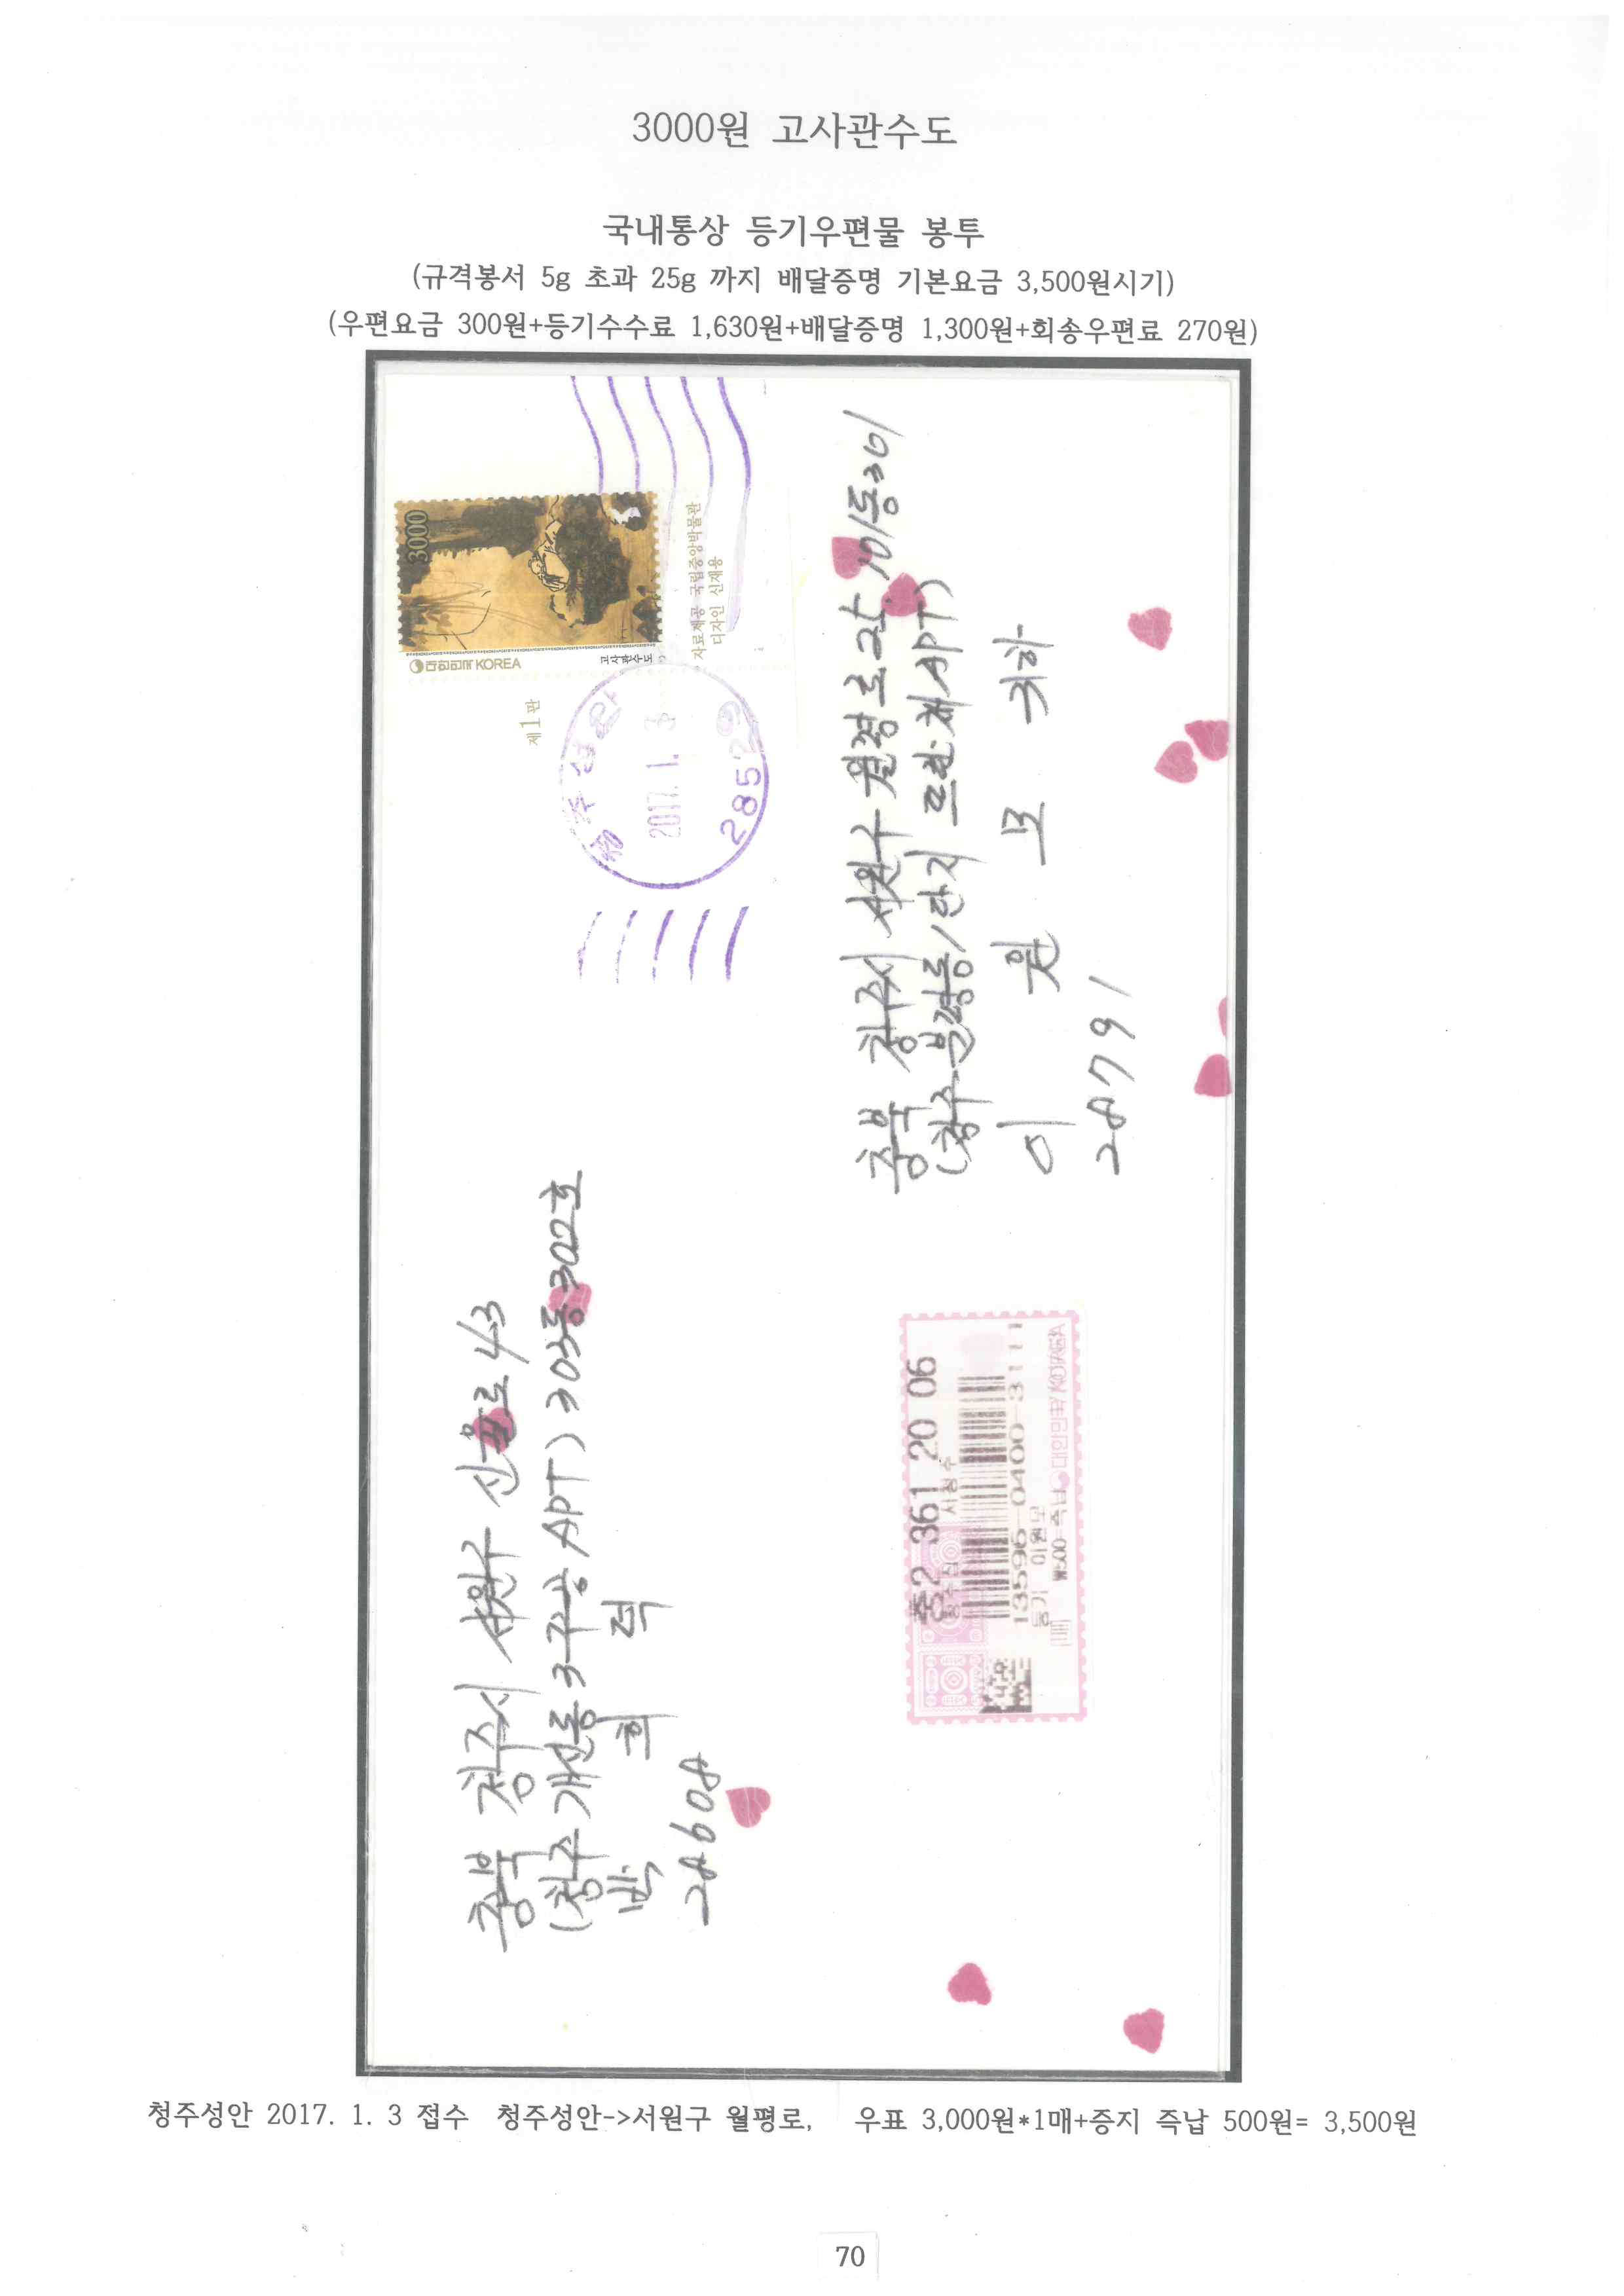 3000원 고사관수도
국내통상 등기우편물 봉투
(규격봉서 5g 초과 25g 까지 배달증명 기본요금 3,500원시기)
(우편요금 300원+등기수수료 1,630원+배달증명 1,300원+회송우편료 270원)
3000
대한민국 KOREA
고사관수도
자료제공 국립중앙박물관
디자인 신재용
제1판
청주성안
2017. 1. 3
285
충북 청주시 서원구 신율로 43
(청주 개신동 3주공 APT) 303동 302호
박 희 력
28608
충북 청주시 서원구 월평로 101동 301
(청주 분평동 1단지 APT)
이 원 모 귀하
28791
중2 361 20 06
13596-0400-3111
등기 이원모
₩500 즉납 대한민국 KOREA
청주성안 2017. 1. 3 접수 청주성안->서원구 월평로, 우표 3,000원*1매+증지 즉납 500원= 3,500원
70